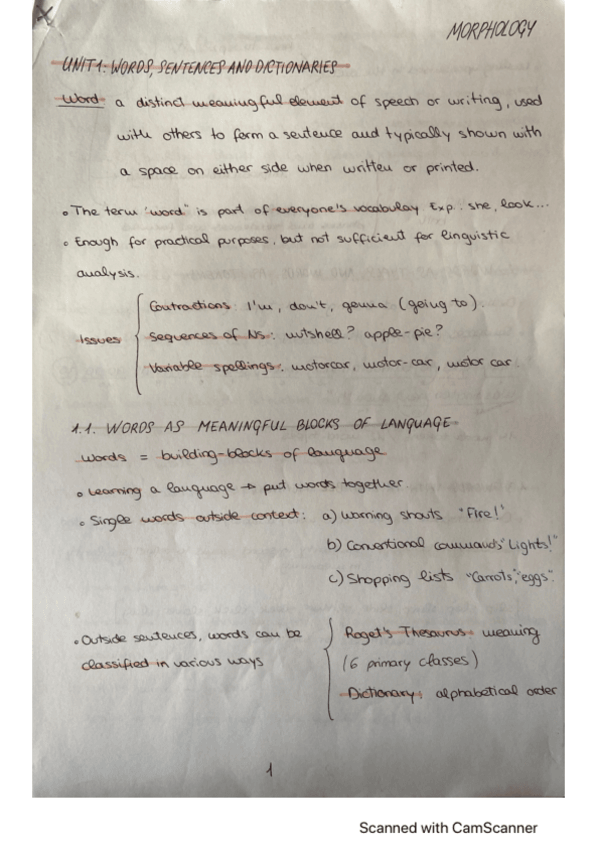 MORPHOLOGY
UNIT 1: WORDS, SENTENCES AND DICTIONARIES
Word: a distinct meaningful element of speech or writing, used
with others to form a sentence and typically shown with
a space on either side when written or printed.
• The term "word" is part of everyone's vocabulary Exp: she, look...
• Enough for practical purposes, but not sufficient for linguistic
analysis.
Issues
Contractions: I'm, don't, gonna (going to).
Sequences of Ns: nutshell? apple-pie?
Variable spellings: motorcar, motor-car, motor car.
1.1. WORDS AS MEANINGFUL BLOCKS OF LANGUAGE
Words = building-blocks of language
• Learning a language → put words together.
• Single words outside context: a) Warning shouts "Fire!"
b) Conventional commands "Lights!"
c) Shopping lists "Carrots", "eggs".
• Outside sentences, words can be
classified in various ways
Roget's Thesaurus: meaning
(6 primary classes)
Dictionary: alphabetical order
1
Scanned with CamScanner